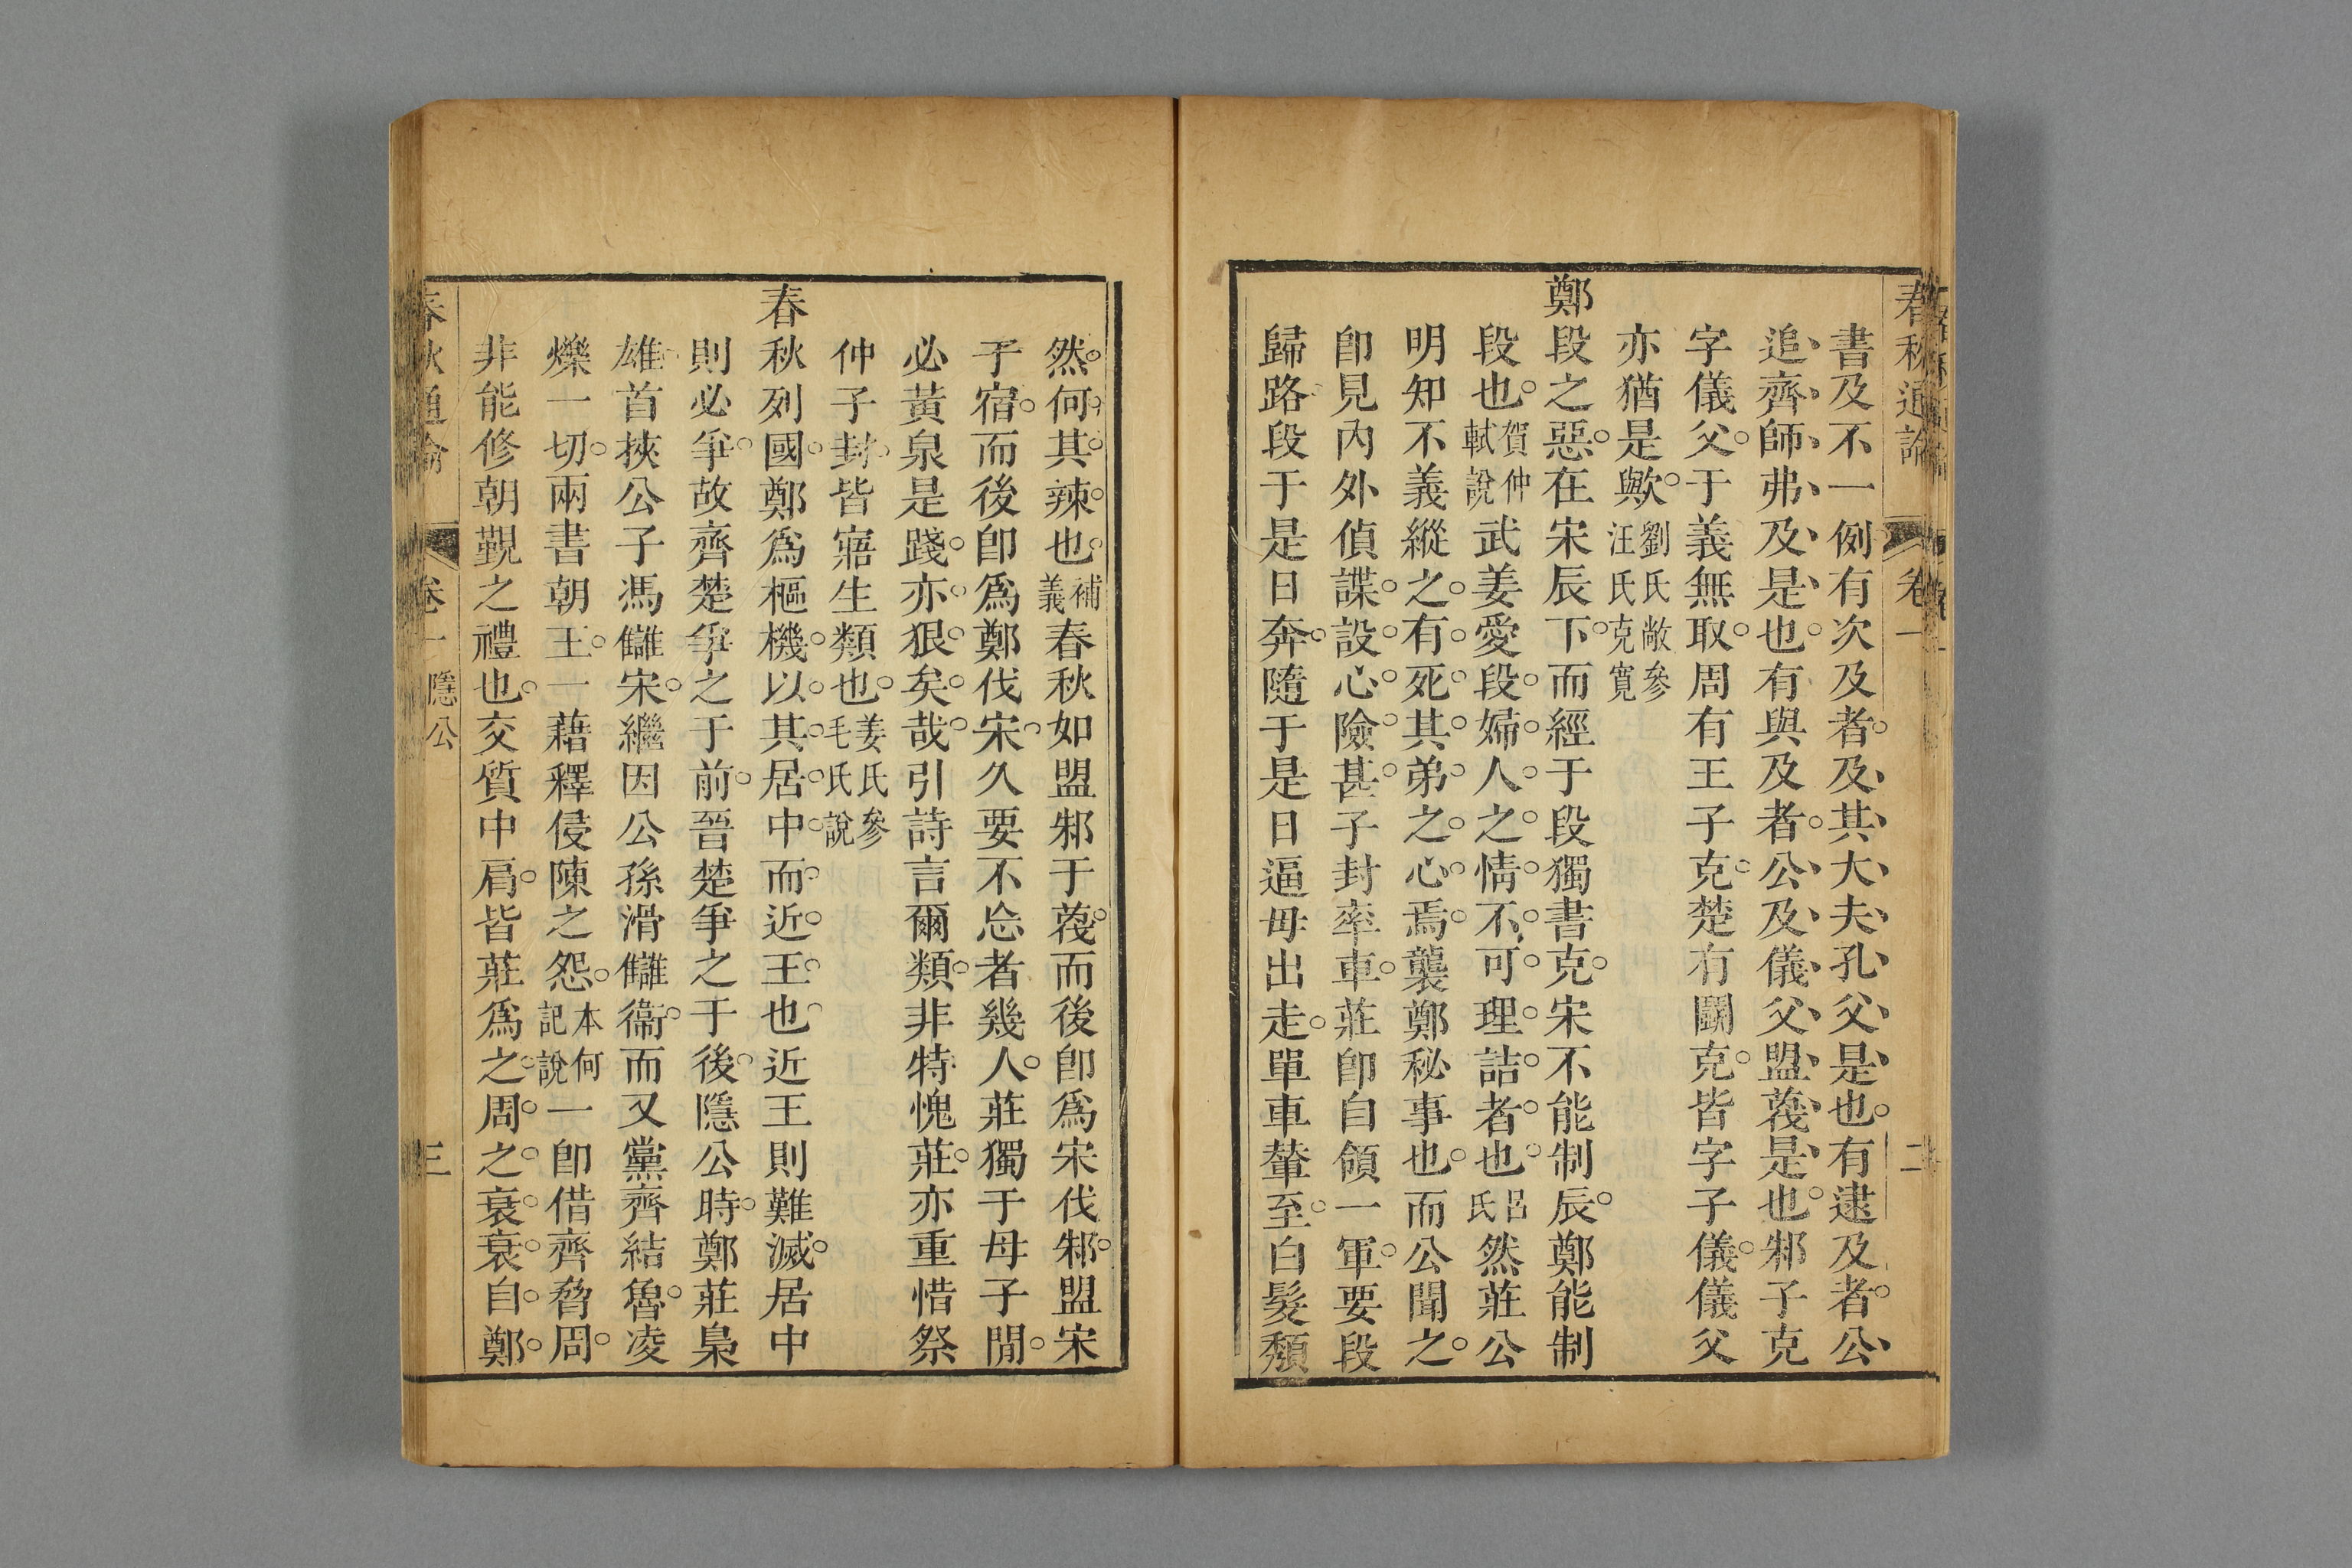 春秋通論 卷一 二
書及不一例有次及者及其大夫孔父是也有逮及者公
追齊師弗及是也有與及者公及儀父盟蔑是也邾子克
字儀父于義無取周有王子克楚有鬭克皆字子儀儀父
亦猶是歟劉氏敞參汪氏克寬
鄭段之惡在宋辰下而經于段獨書克宋不能制辰鄭能制
段也賀仲軾說武姜愛段婦人之情不可理詰者也呂氏然莊公
明知不義縱之有死其弟之心焉襲鄭秘事也而公聞之
卽見內外偵諜設心險甚子封率車莊卽自領一軍要段
歸路段于是日奔隨于是日逼毋出走單車輦至白髮頽
然何其辣也補義春秋如盟邾于蔑而後卽爲宋伐邾盟宋
于宿而後卽爲鄭伐宋久要不忘者幾人莊獨于母子閒
必黃泉是踐亦狠矣哉引詩言爾類非特愧莊亦重惜祭
仲子封皆寤生類也姜氏參毛氏說
春秋列國鄭爲樞機以其居中而近王也近王則難滅居中
則必爭故齊楚爭之于前晉楚爭之于後隱公時鄭莊梟
雄首挾公子馮讎宋繼因公孫滑讎衞而又黨齊結魯凌
爍一切兩書朝王一藉釋侵陳之怨本何記說一卽借齊脅周
非能修朝覲之禮也交質中肩皆莊爲之周之衰衰自鄭
春秋通論 卷一 隱公 三